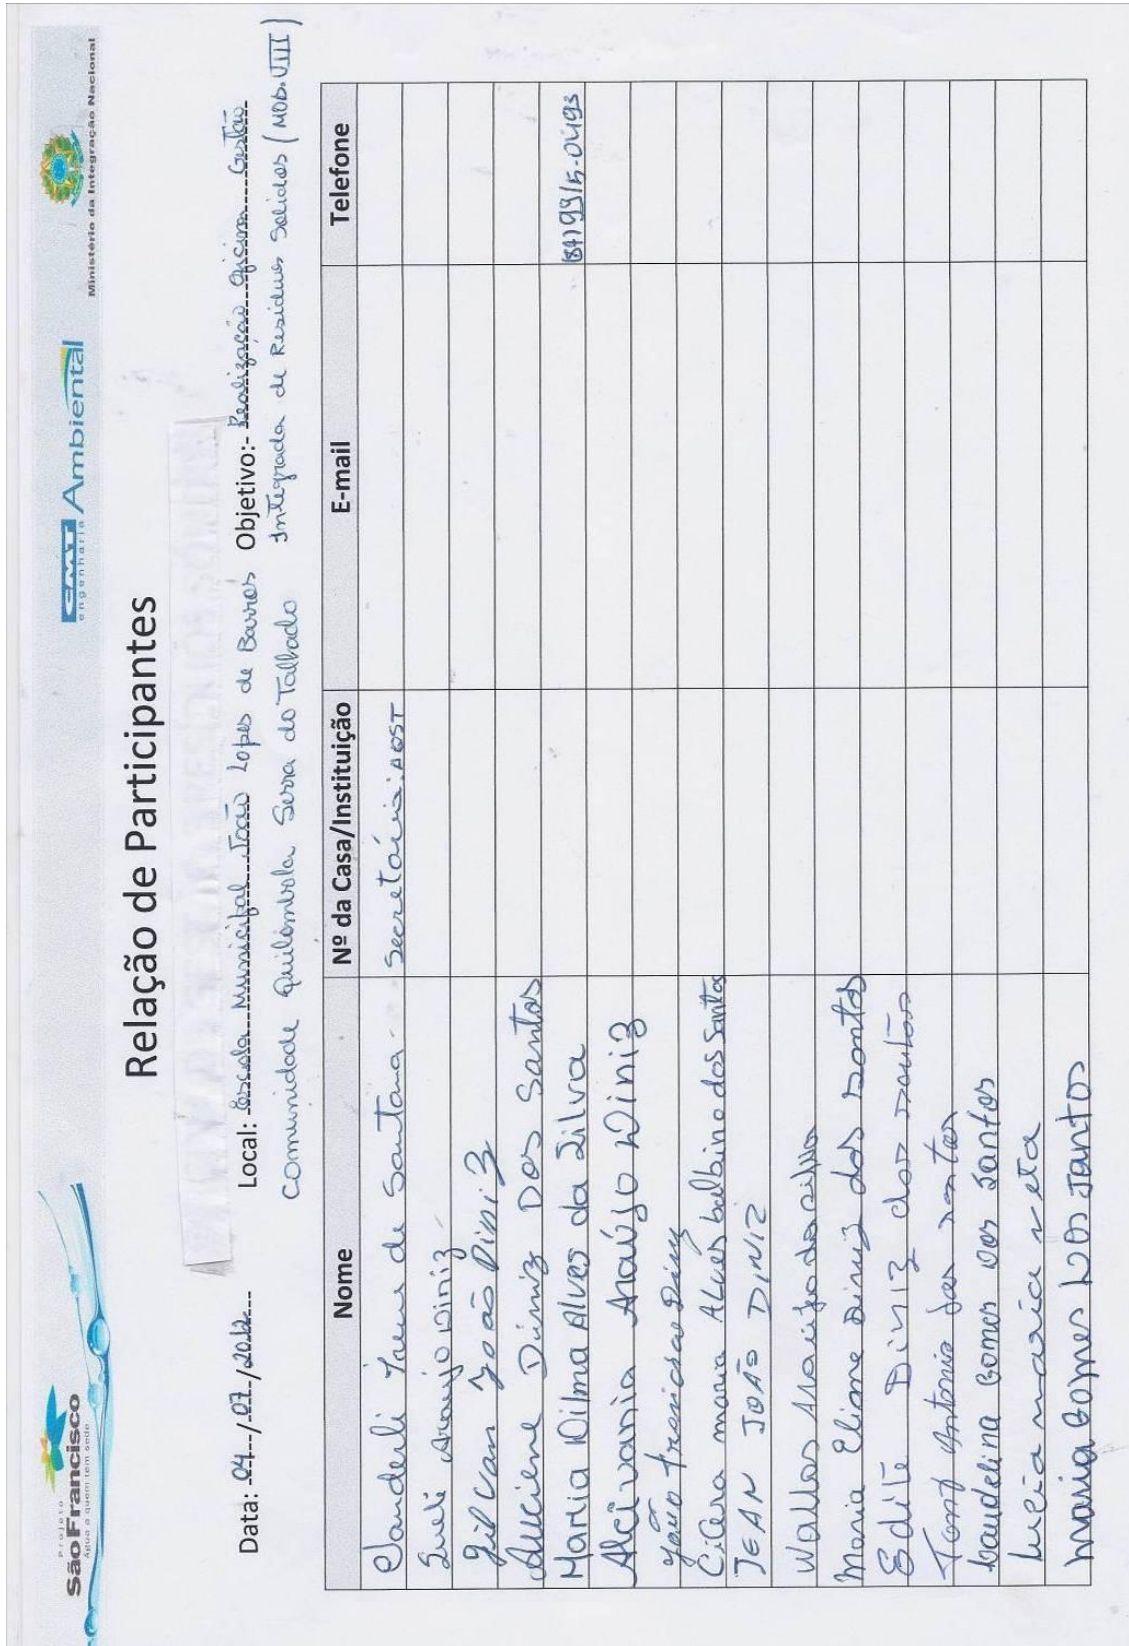 Projeto
São Francisco
Água a quem tem sede
CMT Ambiental
engenharia
Ministério da Integração Nacional
Relação de Participantes
Data: 04/07/2012 Local: Escola Municipal João Lopes de Barros Objetivo: Realização Oficina Gestão
Comunidade Quilombola Serra do Talhado Integrada de Residuos Solidos (MOD. VIII)
Nome Nº da Casa/Instituição E-mail Telefone
de Santana Secretária: AQST
Sueli Araujo Diniz
Gilvan João Diniz
Auciene Diniz Dos Santos
Maria Dilma Alves da Silva (84) 9915-0493
Alcivania Araújo Diniz
João Francisco Diniz
Cicera maria Alves balbino dos Santos
JEAN JOÃO DINIZ
Araújo da silva
Maria Eliane Diniz dos Santos
Edite Diniz dos santos
Antonio dos santos
Gomes dos Santos
Lucia maria neta
Maria Gomes Dos Santos